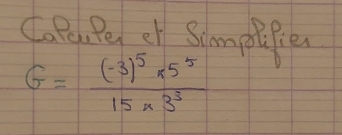 Calculer et Simplifier.
G = \frac{(-3)^5 \times 5^5}{15 \times 3^3}